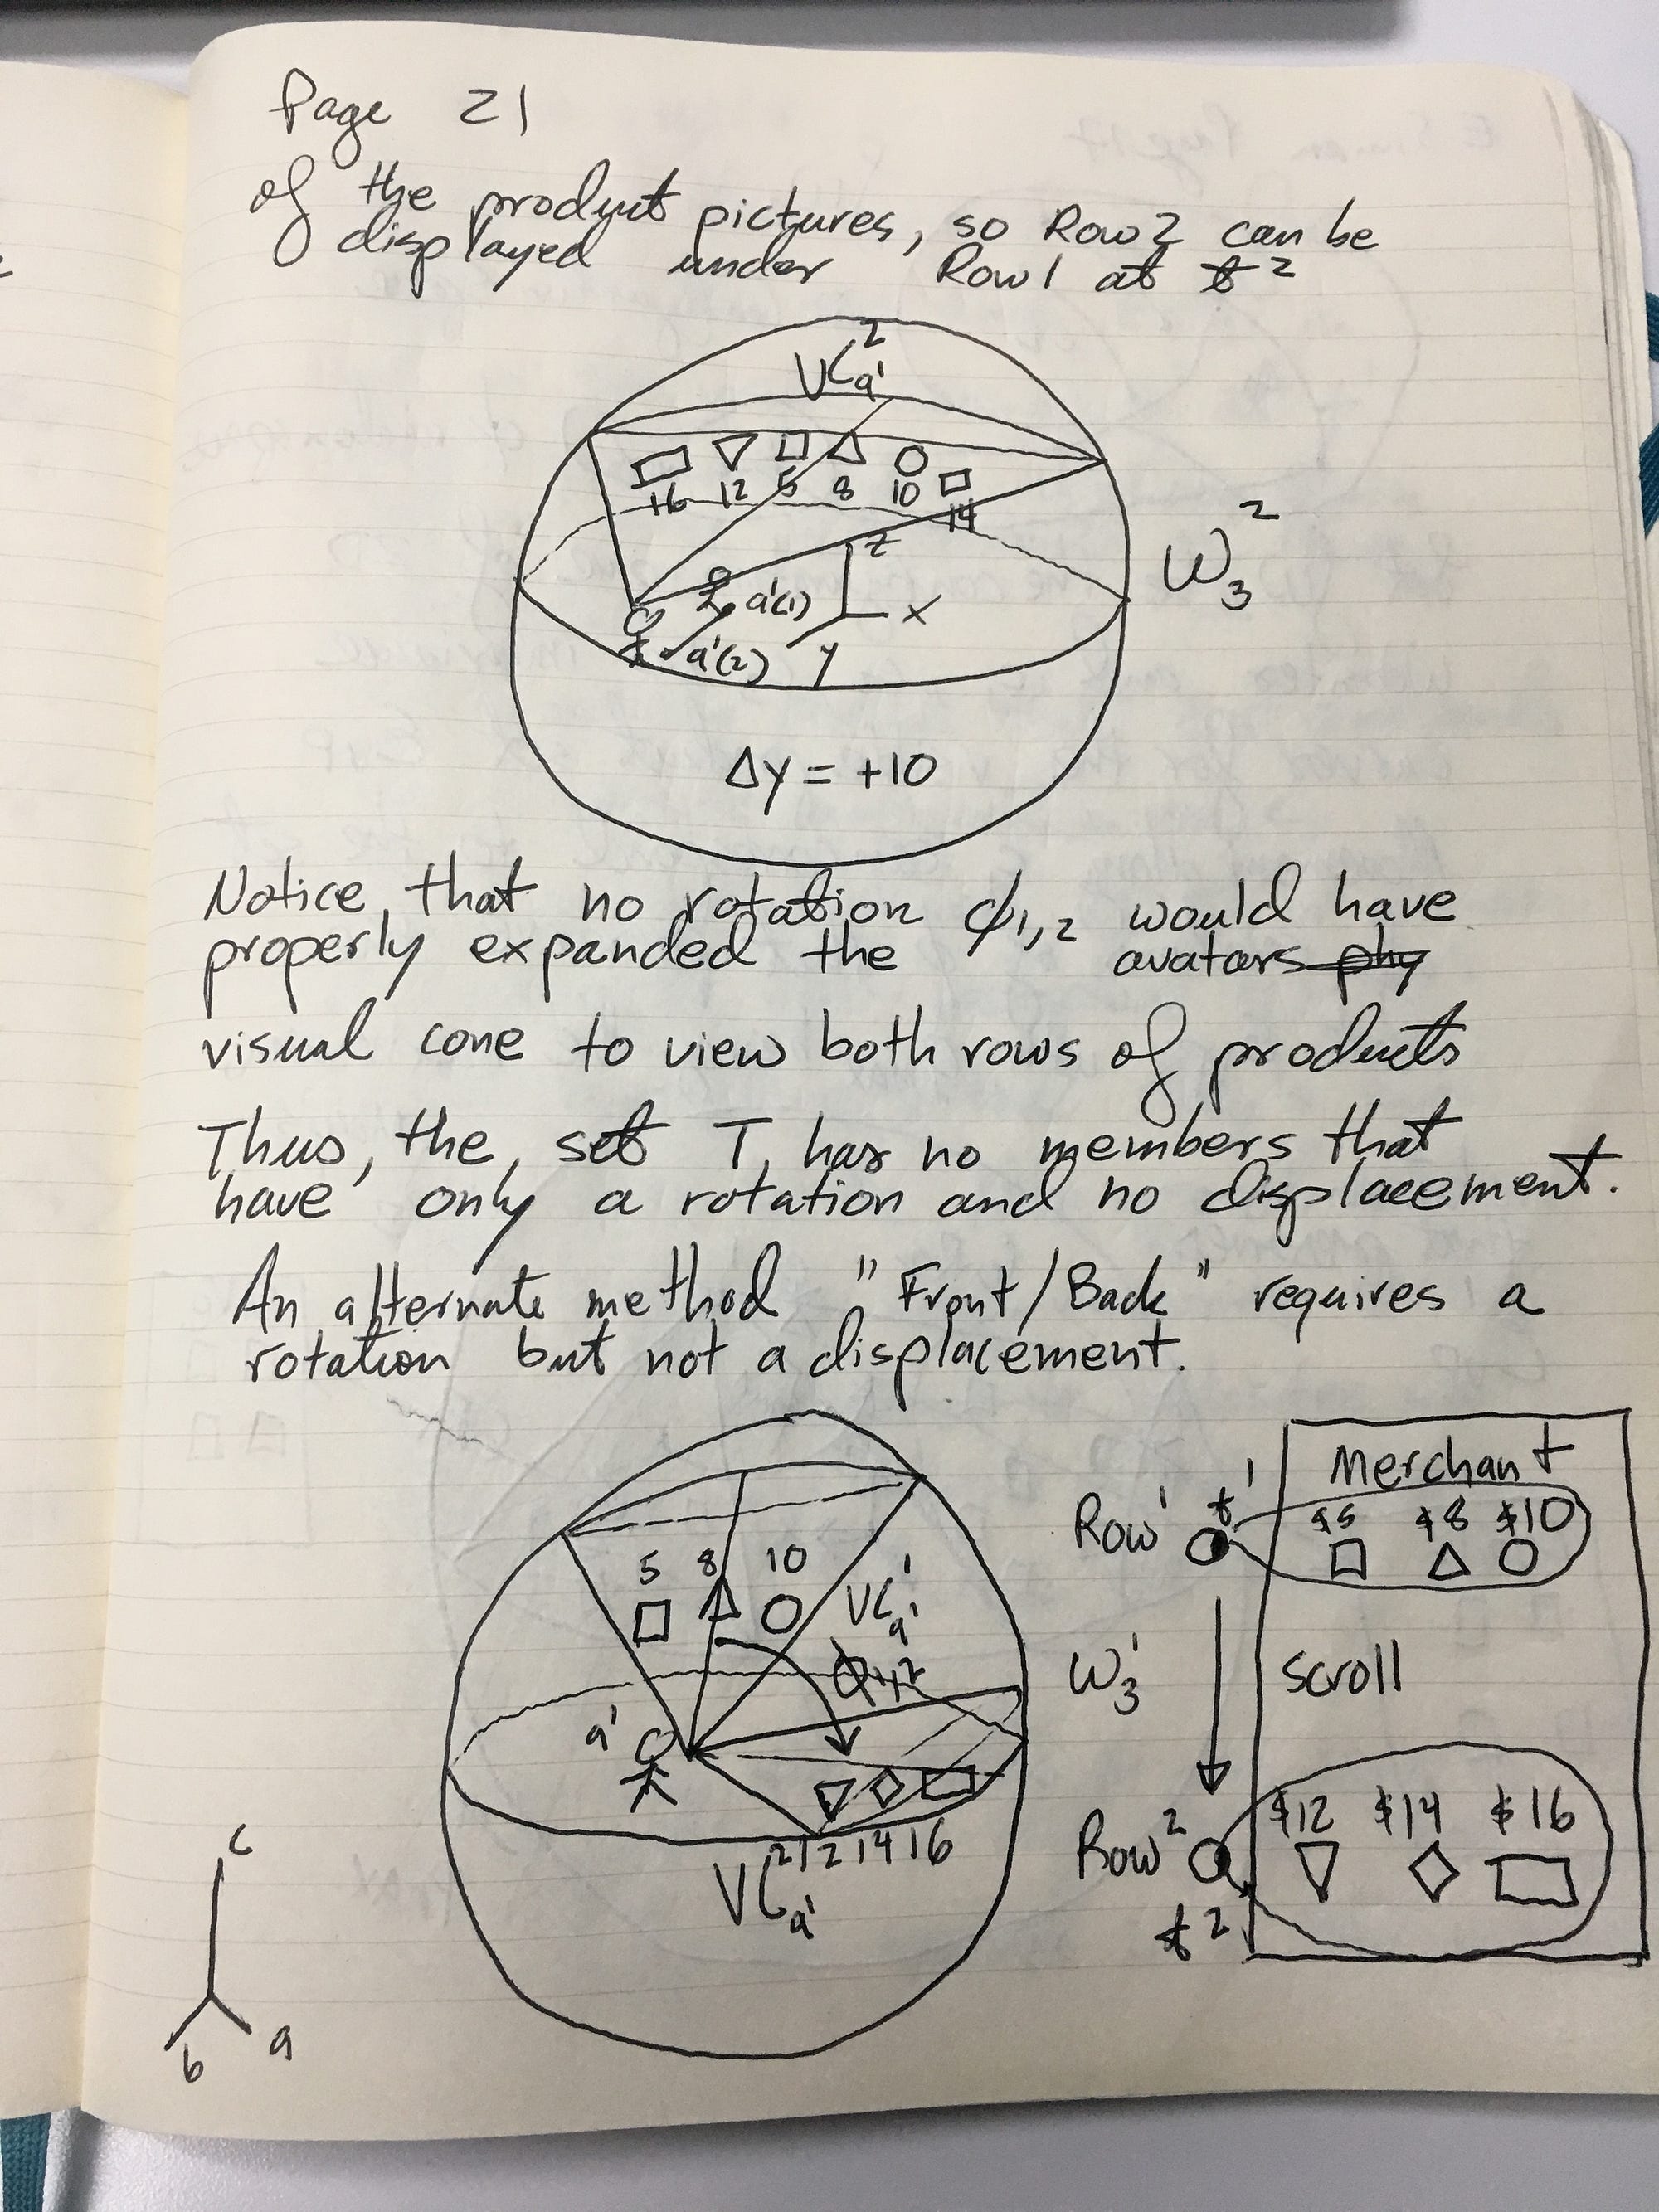 Page 21
of the product pictures, so Row 2 can be
displayed under Row 1 at t²
VC²a'
16 12 5 8 10 14
z
x
y
a'(1)
a'(2)
W₃²
Δy = +10
Notice, that no rotation ϕ₁,₂ would have
properly expanded the avatars phy
visual cone to view both rows of products
Thus, the, set T, has no members that
have only a rotation and no displacement.
An alternate method "Front/Back" requires a
rotation but not a displacement.
5 8 10
VC¹a'
a'
12 14 16
VC²a'
W₃¹
c
b
a
Row¹ t¹
Merchant
$5 $8 $10
scroll
Row²
t²
$12 $14 $16